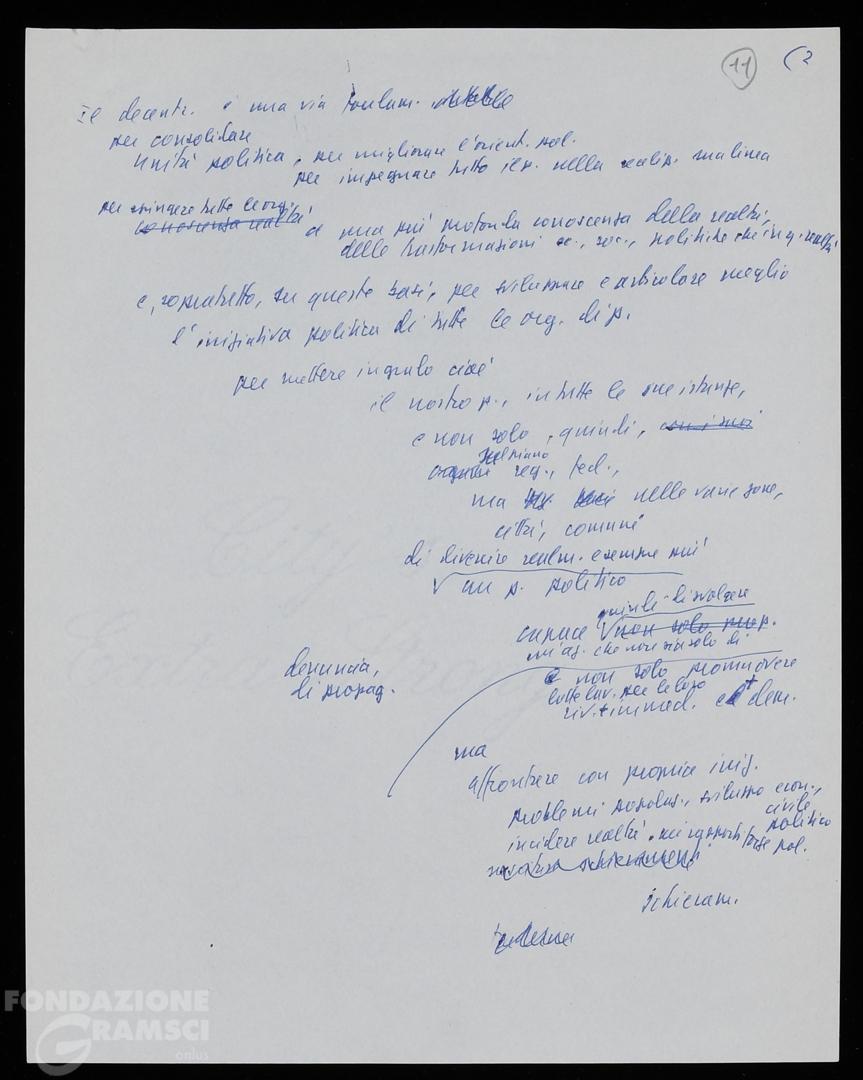 11 (2
Il decentr. è una via fondam.
per consolidare
unità politica, per migliorare l'orient. pol.
per impegnare tutto il p. nella realizz. sua linea
per spingere tutte le org.
conoscenza realtà a una più profonda conoscenza della realtà,
delle trasformazioni ec., soc., politiche che in q. realtà
e, soprattutto, su queste basi, per sviluppare e articolare meglio
l'iniziativa politica di tutte le org. di p.
per mettere in grado cioè
il nostro p., in tutte le sue istanze,
e non solo, quindi,
sul piano
reg., fed.,
ma nelle varie zone,
città, comuni
di divenire realm. e sempre più
un p. politico
quindi di svolgere
capace non solo prop.
un'az. che non sia solo di
denuncia,
di propag.
e non solo promuovere
lotte lav. per le loro
riv. + immed. e + dem.
ma
affrontare con proprie iniz.
problemi popolaz., sviluppo econ.,
civile
incidere realtà, nei rapporti forze pol.
politico
schieramenti
schieram.
FONDAZIONE
GRAMSCI
onlus